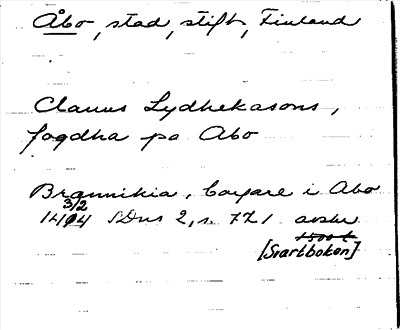 Åbo, stad, stift, Finland
Clauus Lydhekasons,
fogdha pa Abo
Brannikia, borgare i Abo
3/2
1414 SDns 2, s. 771 avskr
[Svartboken]